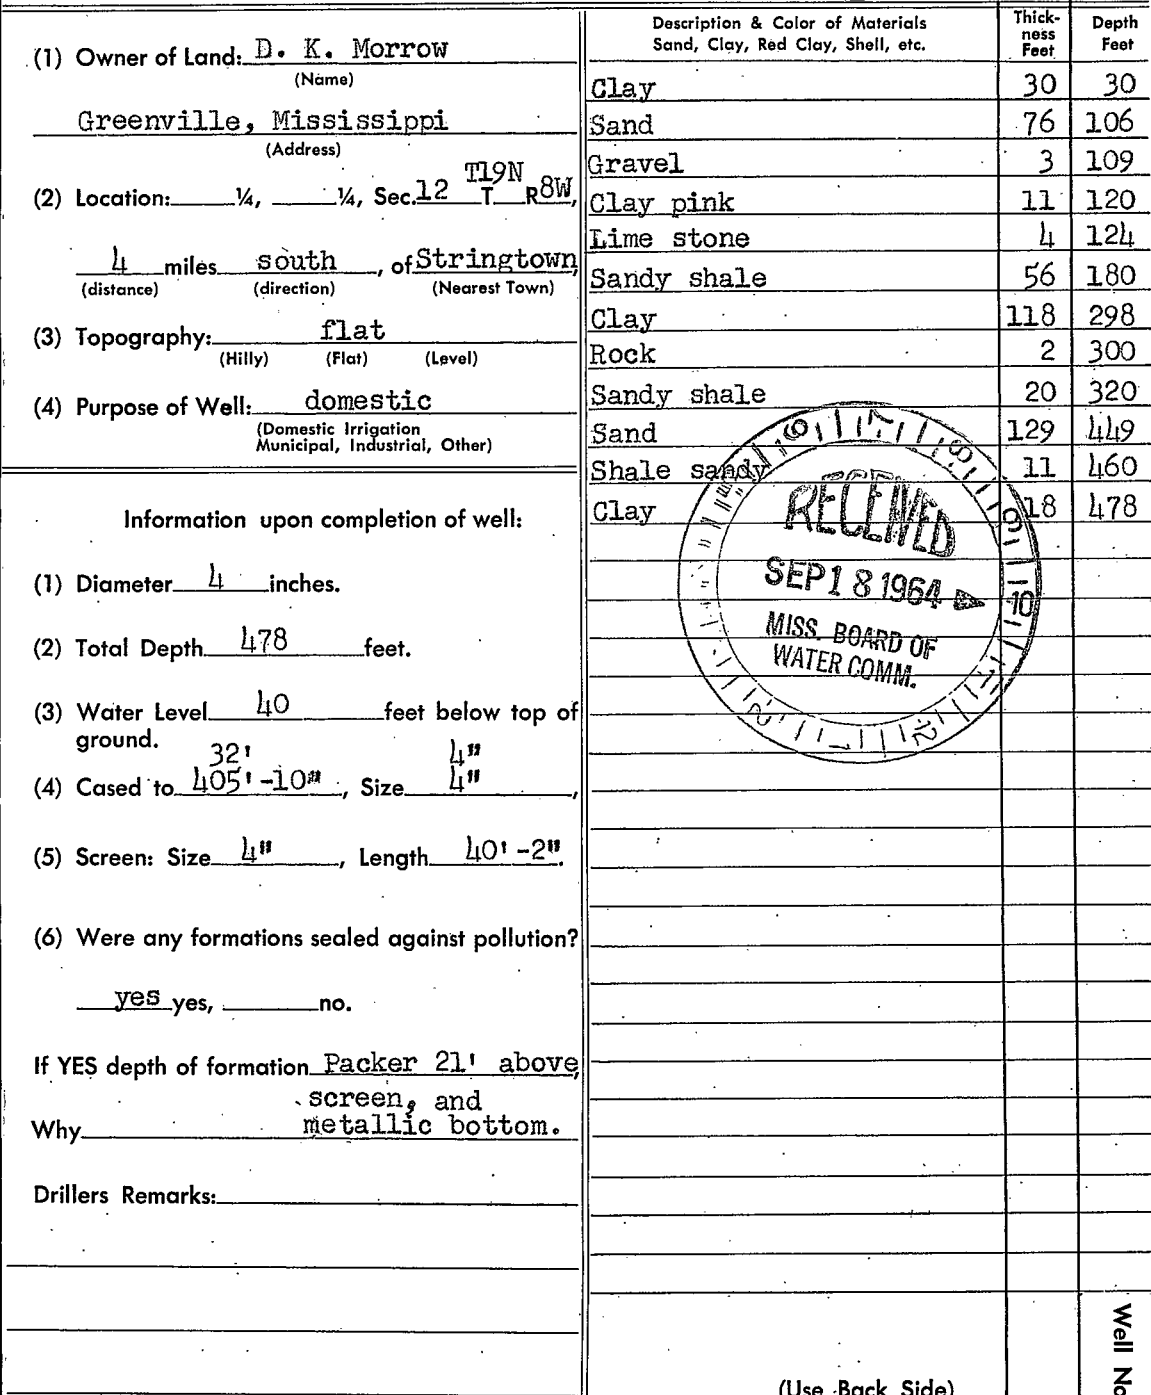 (1) Owner of Land: D. K. Morrow
(Name)
Greenville, Mississippi
(Address)
(2) Location: ¼, ¼, Sec. 12 T19N T R8W,
4 miles south, of Stringtown,
(distance) (direction) (Nearest Town)
(3) Topography: flat
(Hilly) (Flat) (Level)
(4) Purpose of Well: domestic
(Domestic Irrigation
Municipal, Industrial, Other)
Information upon completion of well:
(1) Diameter 4 inches.
(2) Total Depth 478 feet.
(3) Water Level 40 feet below top of
ground.
32' 4"
(4) Cased to 405'-10", Size 4",
(5) Screen: Size 4", Length 40'-2".
(6) Were any formations sealed against pollution?
yes yes, no.
If YES depth of formation Packer 21' above,
screen, and
Why metallic bottom.
Drillers Remarks:
Description & Color of Materials
Sand, Clay, Red Clay, Shell, etc.
Thick-
ness
Feet
Depth
Feet
Clay 30 30
Sand 76 106
Gravel 3 109
Clay pink 11 120
Lime stone 4 124
Sandy shale 56 180
Clay 118 298
Rock 2 300
Sandy shale 20 320
Sand 129 449
Shale sandy 11 460
Clay 18 478
6 7 8 9 10 11 12 1 2
RECEIVED
SEP 18 1964
MISS. BOARD OF
WATER COMM.
(Use Back Side)
Well No